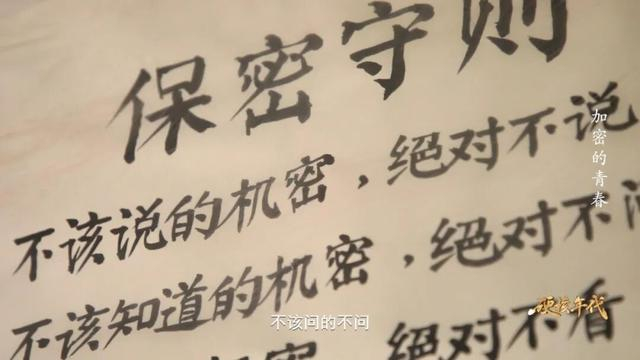 保密守则
不该说的机密，绝对不说
不该知道的机密，绝对不问
机密，绝对不看
加密的青春
硬核年代
不该问的不问